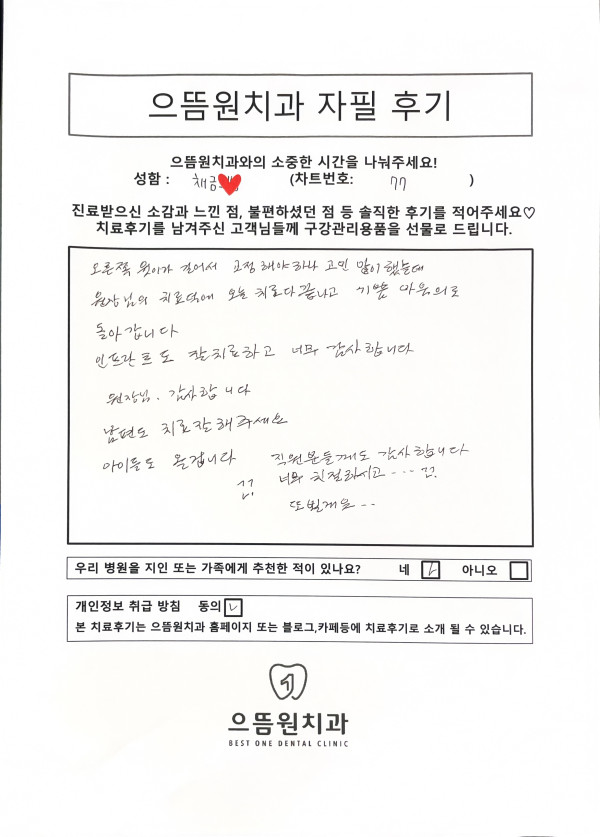 으뜸원치과 자필 후기
으뜸원치과와의 소중한 시간을 나눠주세요!
성함 : 채금 (차트번호: 77 )
진료받으신 소감과 느낀 점, 불편하셨던 점 등 솔직한 후기를 적어주세요♡
치료후기를 남겨주신 고객님들께 구강관리용품을 선물로 드립니다.
오른쪽 윗이가 길어서 교정 해야하나 고민 많이 했는데
원장님의 치료덕에 오늘 치료다끝나고 기쁜 마음의로
돌아갑니다
인프란트도 잘치료하고 너무 감사합니다
원장님. 감사합니다
남편도 치료잘해주세요
아이들도 올겁니다
직원분들께도 감사합니다
너무 친절하시고 ---- 끈.
꼬!
또뵐게요 --
우리 병원을 지인 또는 가족에게 추천한 적이 있나요? 네 아니오
개인정보 취급 방침 동의
본 치료후기는 으뜸원치과 홈페이지 또는 블로그,카페등에 치료후기로 소개 될 수 있습니다.
으뜸원치과
BEST ONE DENTAL CLINIC